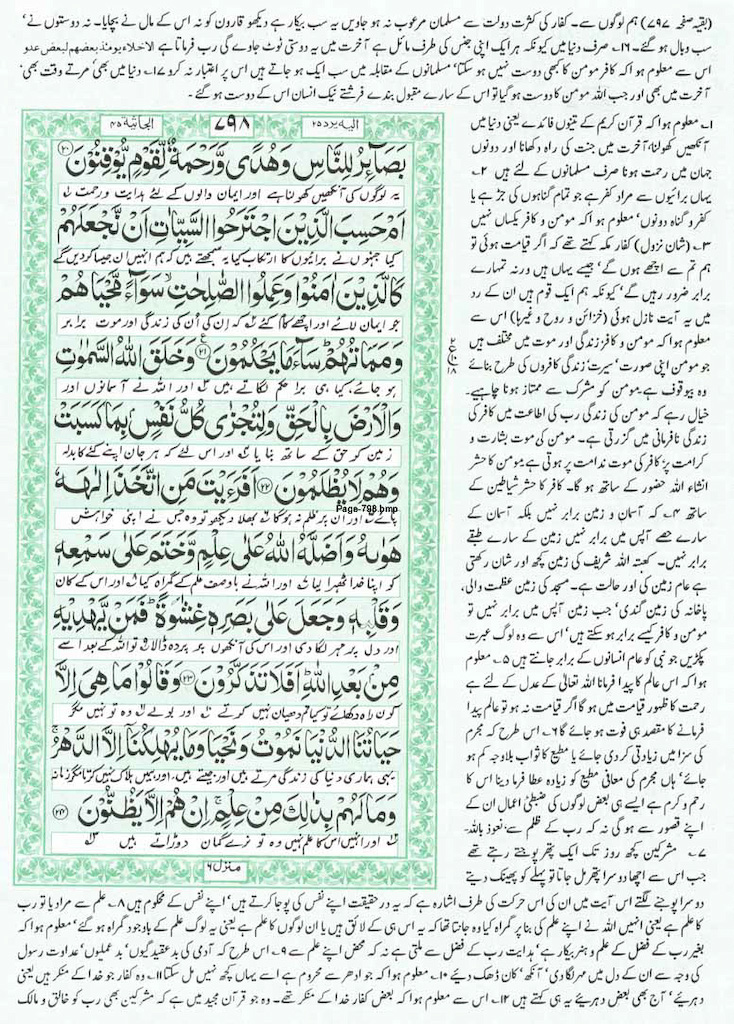 (بقیہ صفحہ ۷۹۷) ہم لوگوں سے۔ کفار کی کثرت دولت سے مسلمان مرعوب نہ ہو جاویں یہ سب بیکار ہے دیکھو قارون کو نہ اس کے مال نے بچایا۔ نہ دوستوں نے'
سب وبال ہو گئے۔ ۱۶۔ صرف دنیا میں کیونکہ ہر ایک اپنی جنس کی طرف مائل ہے آخرت میں یہ دوستی ٹوٹ جاوے گی رب فرماتا ہے الاخلاء یومئذ بعضھم لبعض عدو
اس سے معلوم ہوا کہ کافر مومن کا کبھی دوست نہیں ہو سکتا' مسلمانوں کے مقابلہ میں سب ایک ہو جاتے ہیں اس پر اعتبار نہ کرو ۱۷۔ دنیا میں بھی' مرتے وقت بھی'
آخرت میں بھی اور جب اللہ مومن کا دوست ہو گیا تو اس کے سارے مقبول بندے فرشتے نیک انسان اس کے دوست ہو گئے۔
الیہ یرد ۲۵
۷۹۸
الجاثیۃ ۴۵
بَصَآئِرُ لِلنَّاسِ وَهُدًى وَّرَحْمَةٌ لِّقَوْمٍ يُّوْقِنُوْنَ ۲۰
یہ لوگوں کی آنکھیں کھولنا ہے اور ایمان والوں کے لئے ہدایت و رحمت
اَمْ حَسِبَ الَّذِيْنَ اجْتَرَحُوا السَّيِّاٰتِ اَنْ نَّجْعَلَهُمْ
کیا جنہوں نے برائیوں کا ارتکاب کیا یہ سمجھتے ہیں کہ ہم انہیں ان جیسا کر دیں گے
كَالَّذِيْنَ اٰمَنُوْا وَعَمِلُوا الصّٰلِحٰتِ سَوَآءً مَّحْيَاهُمْ
جو ایمان لائے اور اچھے کام کئے کہ ان کی ان کی زندگی اور موت برابر
وَمَمَاتُهُمْ سَآءَ مَا يَحْكُمُوْنَ ۲۱ وَخَلَقَ اللّٰهُ السَّمٰوٰتِ
ہو جائے کیا ہی برا حکم لگاتے ہیں اور اللہ نے آسمانوں اور
وَالْاَرْضَ بِالْحَقِّ وَلِتُجْزٰى كُلُّ نَفْسٍۭ بِمَا كَسَبَتْ
زمین کو حق کے ساتھ بنایا اور اس لئے کہ ہر جان اپنے کئے کا بدلہ
وَهُمْ لَا يُظْلَمُوْنَ ۲۲ اَفَرَءَيْتَ مَنِ اتَّخَذَ اِلٰهَهٗ
پائے اور ان پر ظلم نہ ہوگا بھلا دیکھو تو وہ جس نے اپنی خواہش
Page-798.bmp
هَوٰىهُ وَاَضَلَّهُ اللّٰهُ عَلٰى عِلْمٍ وَّخَتَمَ عَلٰى سَمْعِهٖ
کو اپنا خدا ٹھہرا لیا اور اللہ نے اسے باوصف علم کے گمراہ کیا اور اس کے کان
وَقَلْبِهٖ وَجَعَلَ عَلٰى بَصَرِهٖ غِشٰوَةً فَمَنْ يَّهْدِيْهِ
اور دل پر مہر لگا دی اور اس کی آنکھوں پر پردہ ڈالا تو اللہ کے بعد اسے
مِنْۢ بَعْدِ اللّٰهِ اَفَلَا تَذَكَّرُوْنَ ۲۳ وَقَالُوْا مَا هِيَ اِلَّا
کون راہ دکھلے تو کیا تم دھیان نہیں کرتے اور بولے وہ تو نہیں مگر
حَيَاتُنَا الدُّنْيَا نَمُوْتُ وَنَحْيَا وَمَا يُهْلِكُنَا اِلَّا الدَّهْرُ
یہی ہماری دنیا کی زندگی مرتے ہیں اور جیتے ہیں اور ہمیں ہلاک نہیں کرتا مگر زمانہ
وَمَا لَهُمْ بِذٰلِكَ مِنْ عِلْمٍ اِنْ هُمْ اِلَّا يَظُنُّوْنَ ۲۴
اور انہیں اس کا علم نہیں وہ تو نرے گمان دوڑاتے ہیں
منزل ۶
۱۔ معلوم ہوا کہ قرآن کریم کے تینوں فائدے یعنی دنیا میں
آنکھیں کھولنا' آخرت میں جنت کی راہ دکھانا اور دونوں
جہان میں رحمت ہونا صرف مسلمانوں کے لئے ہیں ۲۔
یہاں برائیوں سے مراد کفر ہے جو تمام گناہوں کی جڑ ہے یا
کفر و گناہ دونوں' معلوم ہوا کہ مومن و کافر یکساں نہیں
۳۔ (شان نزول) کفار مکہ کہتے تھے کہ اگر قیامت ہوئی تو
ہم تم سے اچھے ہوں گے' جیسے یہاں ہیں ورنہ تمہارے
برابر ضرور رہیں گے' کیونکہ ہم ایک قوم ہیں ان کے رد
میں یہ آیت نازل ہوئی (خزائن و روح و غیرہا) اس سے
معلوم ہوا کہ مومن و کافر زندگی اور موت میں مختلف ہیں
جو مومن اپنی صورت' سیرت' زندگی کافروں کی طرح بنائے
وہ بیوقوف ہے۔ مومن کو مشرک سے ممتاز ہونا چاہیے۔
خیال رہے کہ مومن کی زندگی رب کی اطاعت میں کافر کی
زندگی نافرمانی میں گزرتی ہے۔ مومن کی موت بشارت و
کرامت پر' کافر کی موت ندامت پر ہوتی ہے' مومن کا حشر
انشاء اللہ حضور کے ساتھ ہو گا۔ کافر کا حشر شیاطین کے
ساتھ ۴۔ کہ آسمان و زمین برابر نہیں بلکہ آسمان کے
سارے حصے آپس میں برابر نہیں زمین کے سارے طبقے
برابر نہیں۔ کعبۃ اللہ شریف کی زمین کچھ اور شان رکھتی
ہے عام زمین کی اور حالت ہے۔ مسجد کی زمین عظمت والی'
پاخانہ کی زمین گندی' جب زمین آپس میں برابر نہیں تو
مومن و کافر کیسے برابر ہو سکتے ہیں' اس سے وہ لوگ عبرت
پکڑیں جو نبی کو عام انسانوں کے برابر جانتے ہیں ۵۔ معلوم
ہوا کہ اس عالم کا پیدا فرمانا اللہ تعالیٰ کے عدل کے لئے ہے
رحمت کا ظہور قیامت میں ہو گا اگر قیامت نہ ہو تو عالم پیدا
فرمانے کا مقصد ہی فوت ہو جائے گا ۶۔ اس طرح کہ مجرم
کی سزا میں زیادتی کر دی جائے یا مطیع کا ثواب بلاوجہ کم ہو
جائے' ہاں مجرم کی معافی مطیع کو زیادہ عطا فرما دینا اس کا
رحم و کرم ہے ایسے ہی بعض لوگوں کی ضبطی اعمال ان کے
اپنے قصور سے ہو گی نہ کہ رب کے ظلم سے نعوذ باللہ۔
۷۔ مشرکین کچھ روز تک ایک پتھر پوجتے رہتے تھے
جب اس سے اچھا دوسرا پتھر مل جاتا تو پہلے کو پھینک دیتے
دوسرا پوجنے لگتے اس آیت میں ان کی اس حرکت کی طرف اشارہ ہے کہ یہ در حقیقت اپنے نفس کی پوجا کرتے ہیں' اپنے نفس کے محکوم ہیں ۸۔ علم سے مراد یا تو رب
کا علم ہے یعنی انہیں اللہ نے اپنے علم کی بنا پر گمراہ کیا وہ جانتا تھا کہ یہ اس ہی کے لائق ہیں یا ان لوگوں کا علم ہے یعنی یہ لوگ علم کے باوجود گمراہ ہو گئے' معلوم ہوا کہ
بغیر رب کے فضل کے علم و ہنر بیکار ہے' ہدایت رب کے فضل سے ملتی ہے نہ کہ محض اپنے علم سے ۹۔ اس طرح کہ آدمی کی بدعقیدگیوں' بدعملیوں' عداوت رسول
کی وجہ سے ان کے دل میں مہر لگا دی' آنکھ' کان ڈھک دیئے ۱۰۔ معلوم ہوا کہ جو ادھر سے محروم ہے اسے یہاں کچھ نہیں مل سکتا ۱۱۔ وہ کفار جو خدا کے منکر ہیں یعنی
دہریئے' آج بھی بعض دہریئے یہ ہی کہتے ہیں ۱۲۔ اس سے معلوم ہوا کہ بعض کفار خدا کے منکر تھے۔ وہ جو قرآن مجید میں ہے کہ مشرکین بھی رب کو خالق و مالک